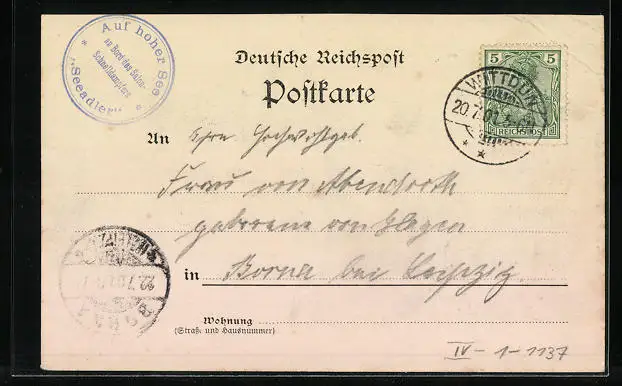 Auf hoher See
an Bord des Salon-
Schnelldampfers
"Seeadler"
Deutsche Reichspost
Postkarte
5 5
REICHSPOST
WITTDÜN
20.7.01
An Ihre Hochwohlgeb.
Frau von Abendroth
geborene von
in Borna bei Leipzig.
BORNA
22.7.01
Wohnung
(Straße und Hausnummer)
IV-1-1137